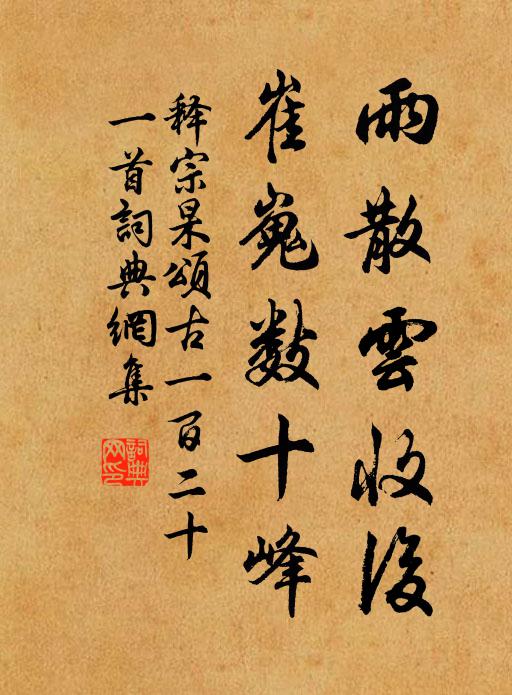 雨散雲收後
崔嵬數十峰
释宗杲頌古一百二十
一首詞典網集
詞典網印